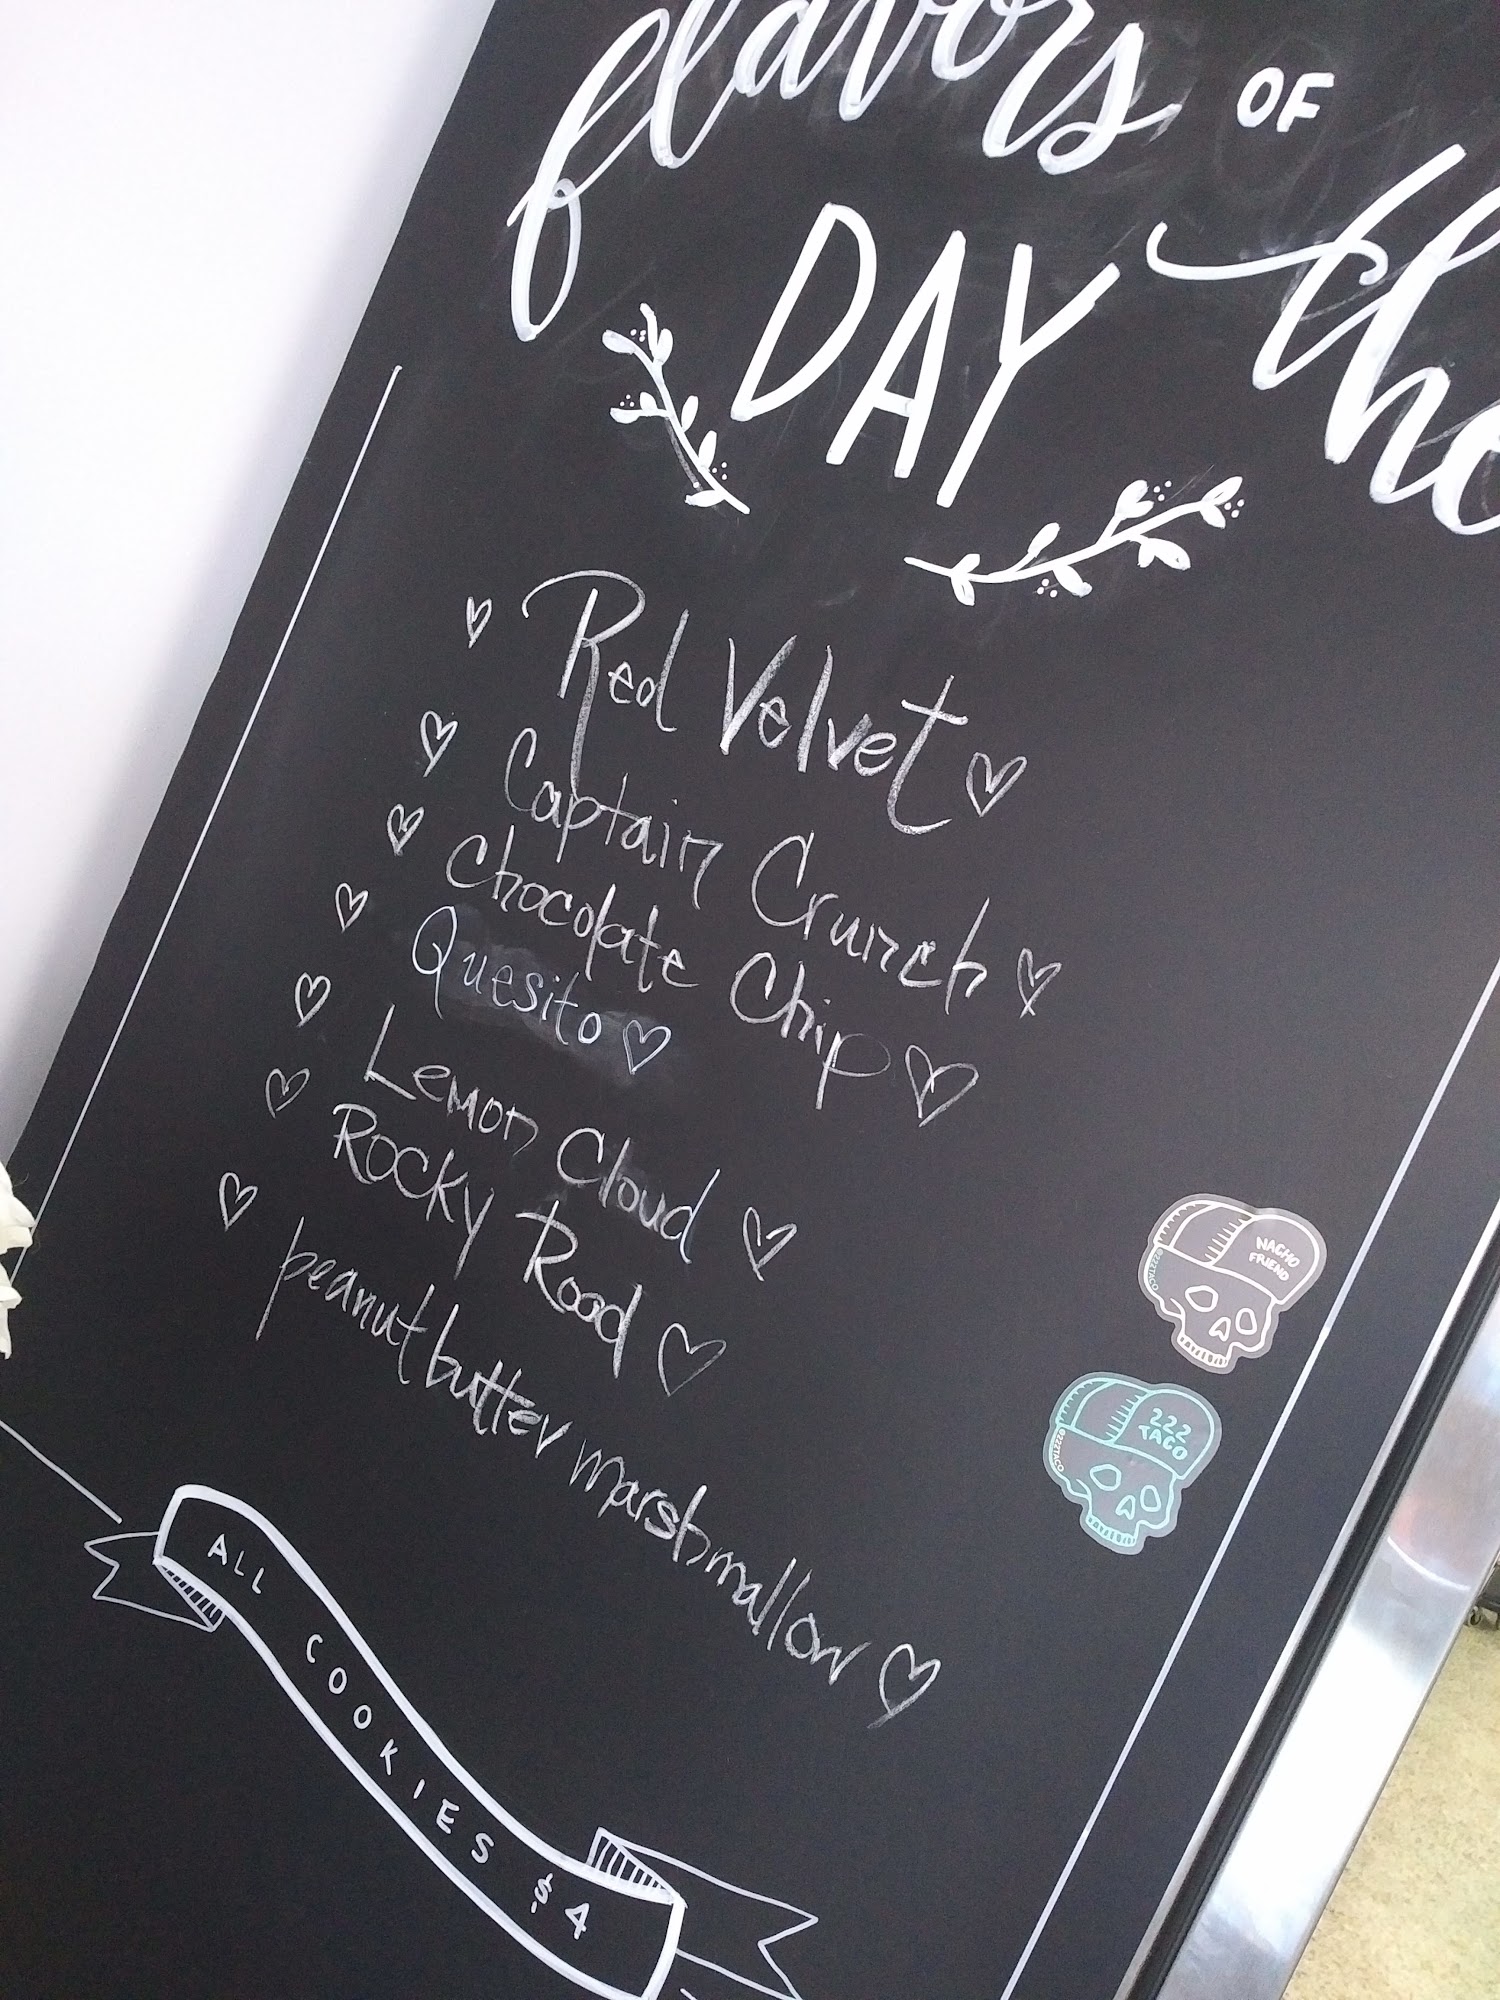 flavors OF
the
DAY
Red Velvet
Captain Crunch
Chocolate Chip
Quesito
Lemon Cloud
Rocky Road
peanut butter marshmallow
NACHO
FRIEND
@222TACO
222
TACO
@222TACO
ALL COOKIES $4